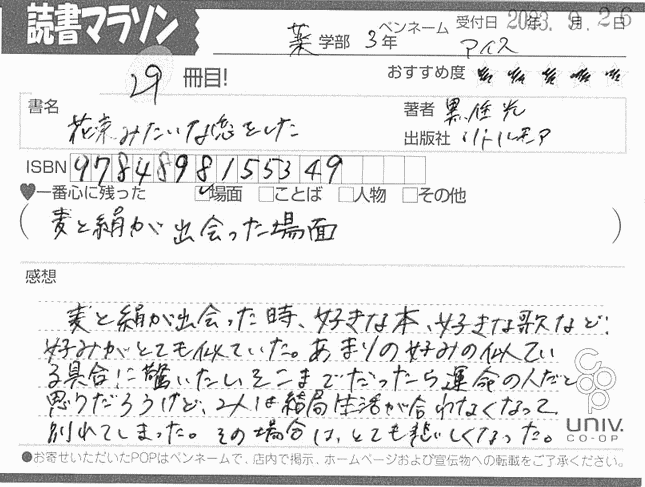 読書マラソン
薬学部 3年 ペンネーム アイス 受付日 2023年 9月 26日
29冊目!
おすすめ度
書名 花束みたいな恋をした
著者 黒住光
出版社 リトルモア
ISBN 9784898155349
♥一番心に残った ☑場面 □ことば □人物 □その他
(麦と絹が出会った場面)
感想
麦と絹が出会った時、好きな本、好きな歌など、
好みがとても似ていた。あまりの好みの似てい
る具合に驚いたしそこまでだったら運命の人だと
思うだろうけど、2人は結局生活が合わなくなって
別れてしまった。その場合は、とても悲しくなった。
coop
UNIV.
CO-OP
●お寄せいただいたPOPはペンネームで、店内で掲示、ホームページおよび宣伝物への転載をご了承ください。